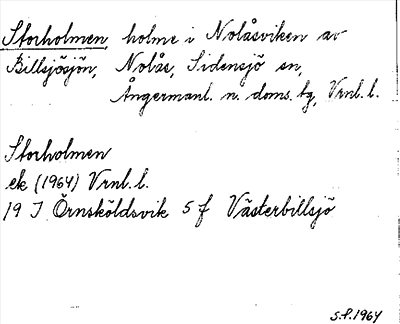 Storholmen, holme i Nolåsviken av
Billsjösjön, Nolås, Sidensjö sn,
Ångermanl. n. doms. tg, Vrnl. l.
Storholmen
ek (1964) Vrnl. l.
19 J Örnsköldsvik 5 f Västerbillsjö
S.f. 1964